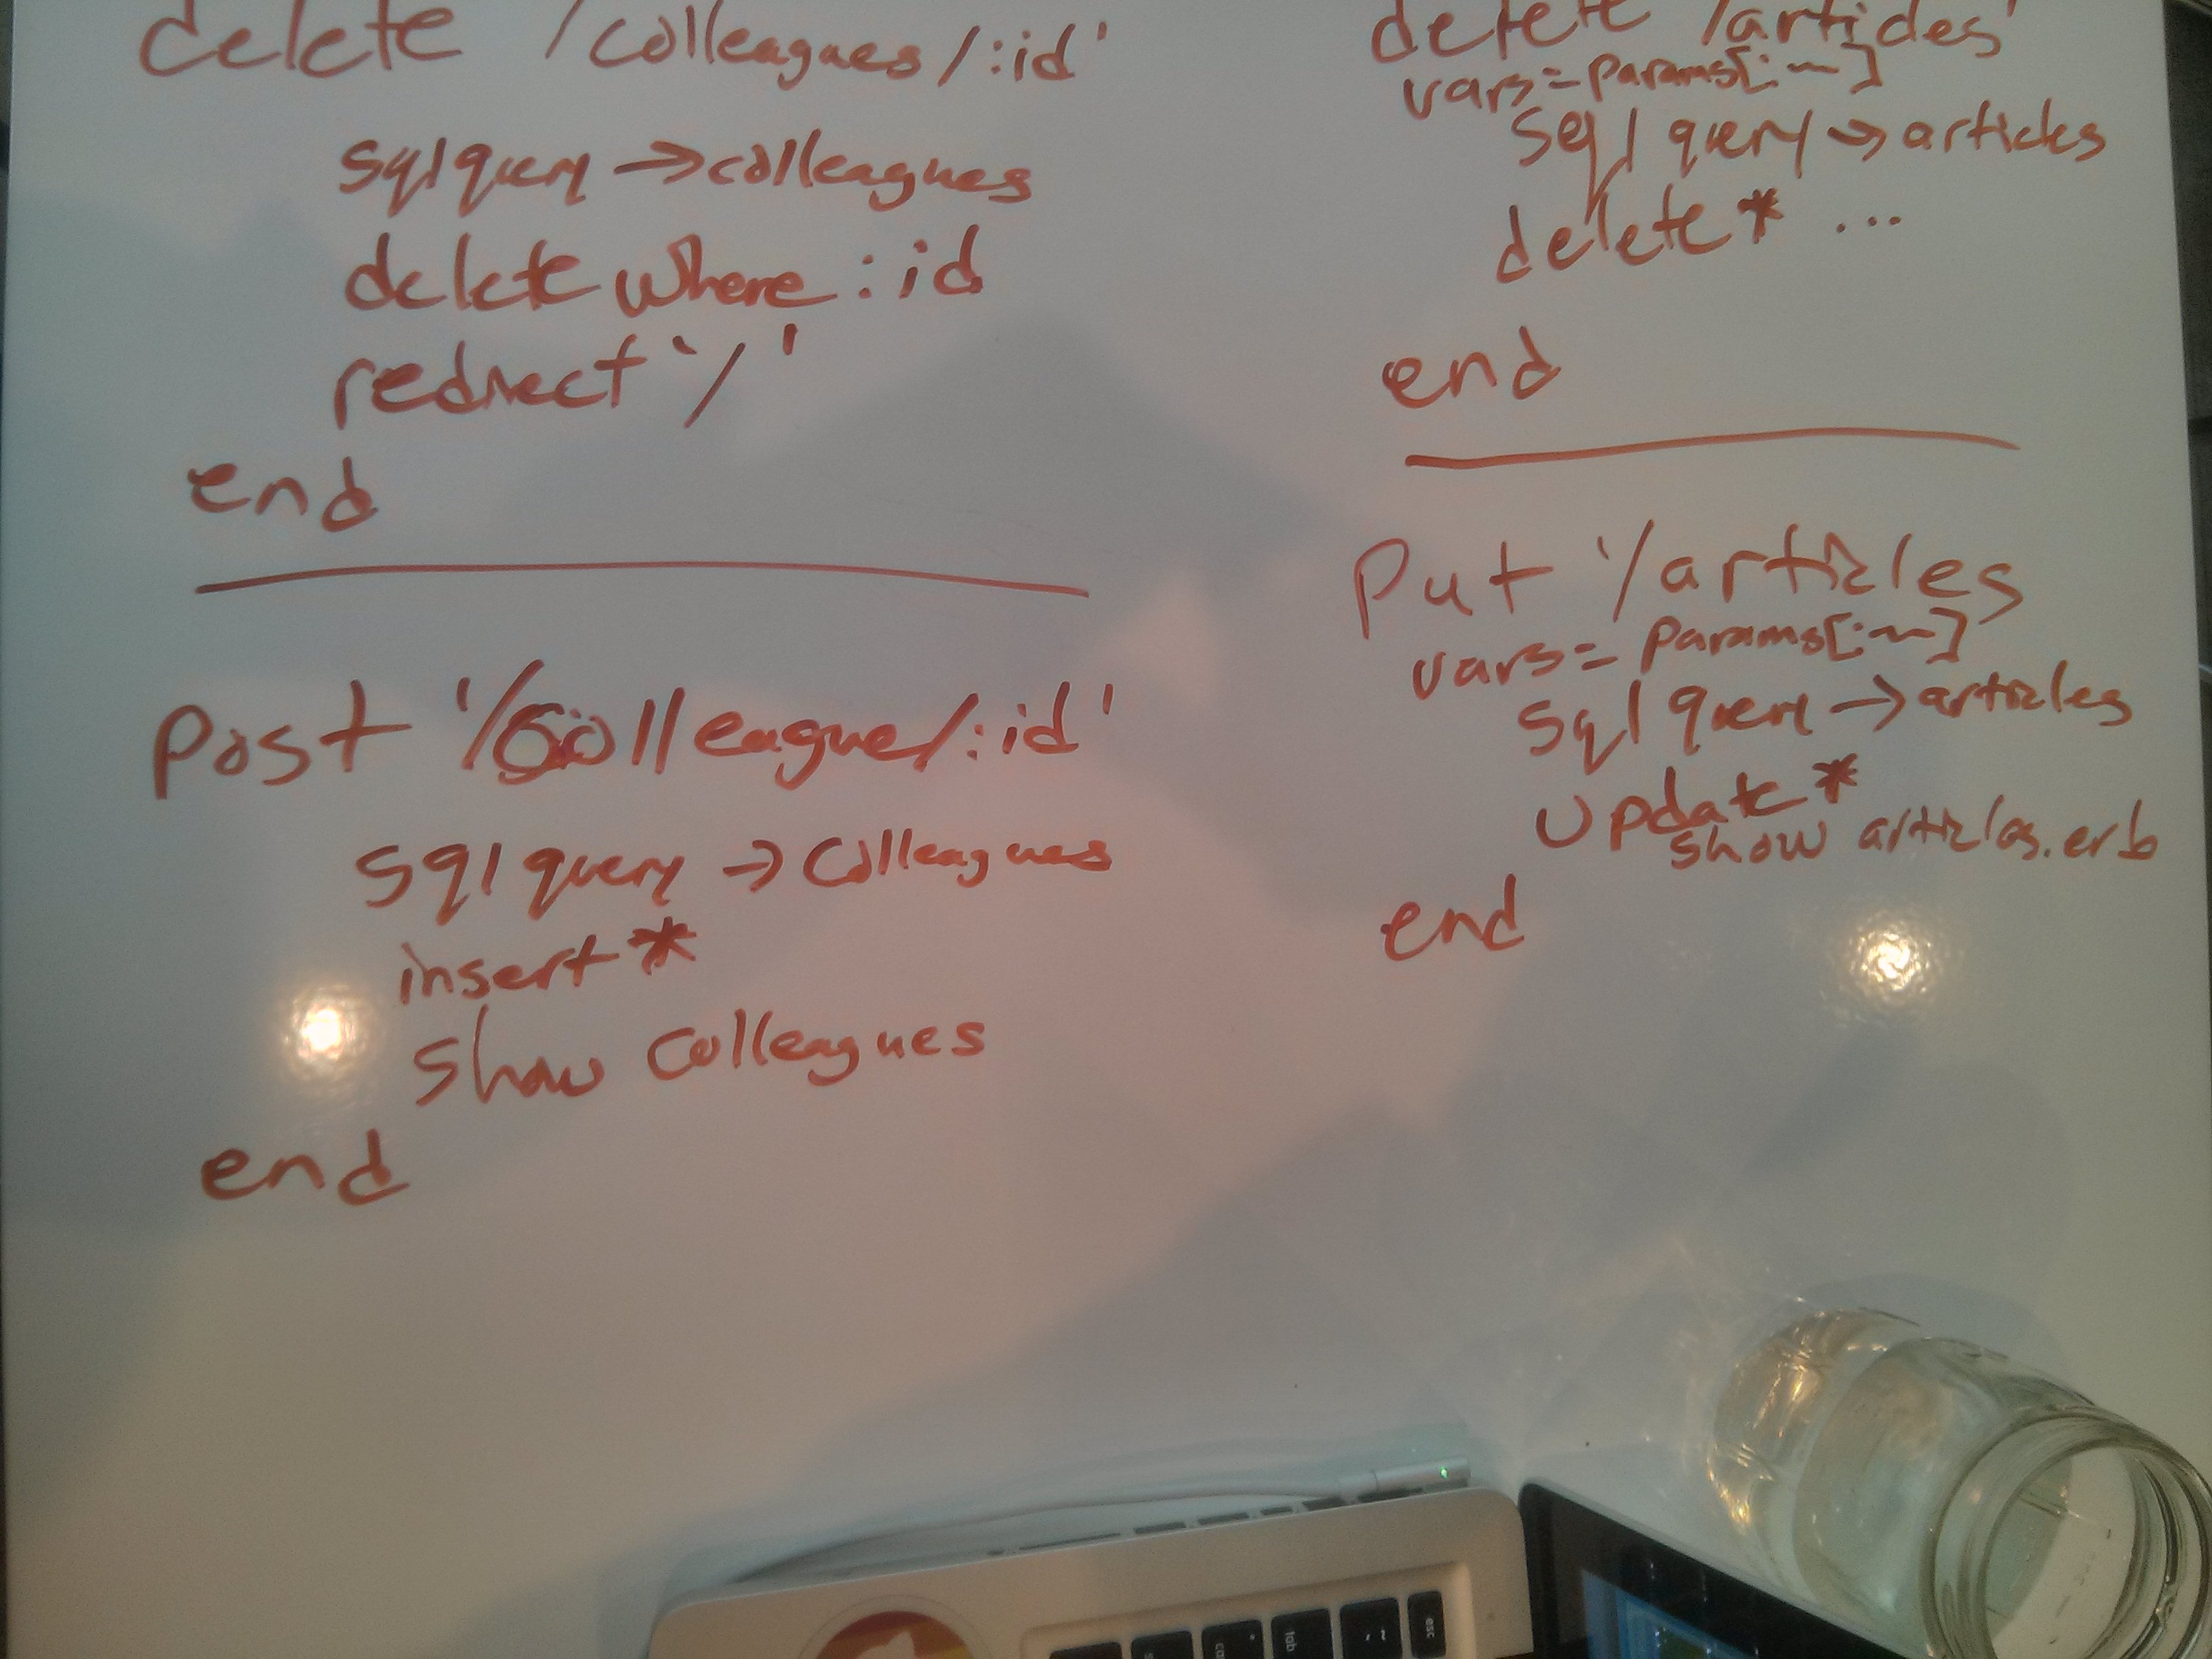 delete '/colleagues/:id'
sql query → colleagues
delete where :id
redirect '/'
end
Post '/Colleague/:id'
sql query → Colleagues
insert *
show Colleagues
end
delete '/articles'
vars = params[:~]
sql query → articles
delete * ...
end
Put '/articles
vars = params[:~]
sql query → articles
update *
show articles.erb
end
esc
tab